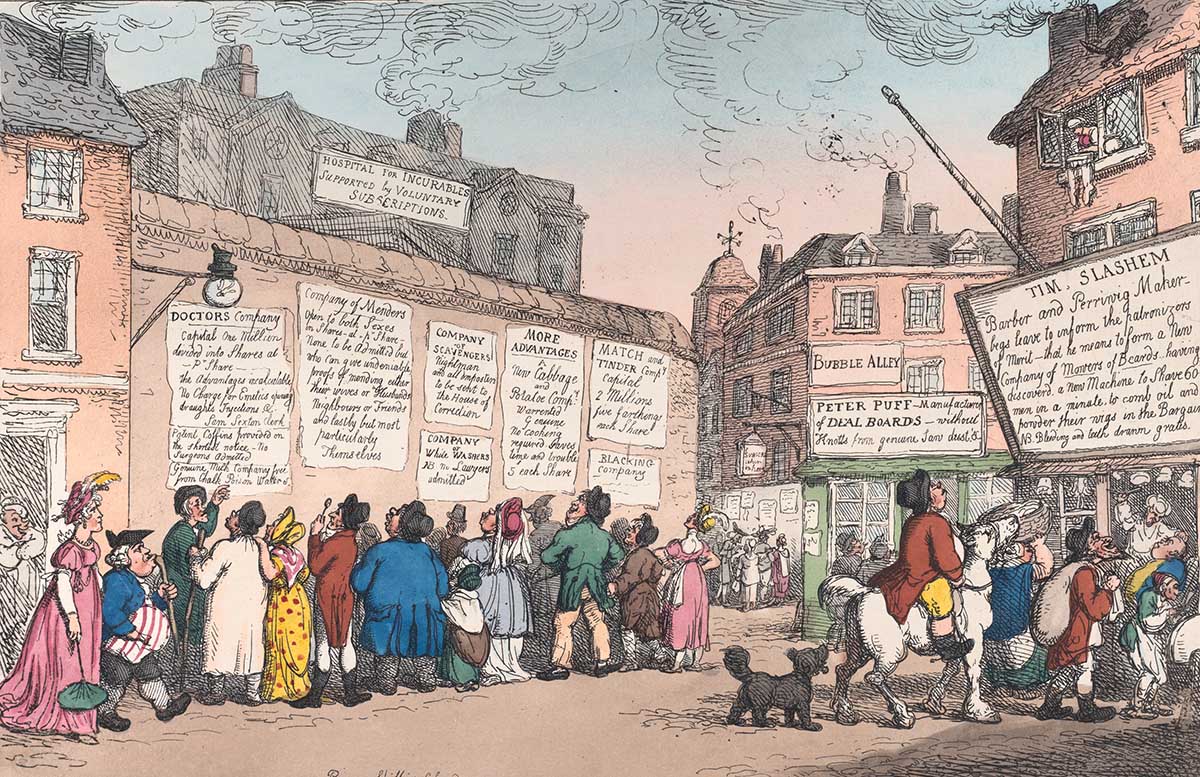 HOSPITAL FOR INCURABLES
SUPPORTED by VOLUNTARY
SUBSCRIPTIONS.
DOCTORS Company
Capital One Million
divided into Shares at
P Share
the Advantages incalculable
No Charge for Emetics opening
draughts Injections &c
Sam Sexton Clerk
Patent Coffins provided on
the shortest notice - No
Surgeons Admitted
Genuine Milk Company free
from Chalk Poison Water &c
Company of Menders
Open to both Sexes
in Shares - at - P Share -
None to be Admitted but
who can give undeniable
proofs of mending either
their wives or Husbands
Neighbours or Friends
and lastly but most
particularly
Themselves
COMPANY
of SCAVENGERS
Nightman
and all Imposters
to be sent to
the House of
Correction
COMPANY
White WASHERS
NB no Lawyers
admitted
MORE
ADVANTAGES
New Cabbage
and
Potatoe Compy
Warrented
Genuine
No cooking
required saves
time and trouble
5 each Share
MATCH and
TINDER Compy
Capital
2 Millions
five farthengs
each Share
BLACKING
Company
BUBBLE ALLEY
PETER PUFF - Manufactury
of DEAL BOARDS - without
Knotts from genuine Saw dust, &
TIM, SLASHEM
Barber and Perriwig Maker -
begs leave to inform the patronizers
of Merit - that he means to form a New
Company of Mowers of Beards - having
discovered a New Machine to Shave 60
men in a minute. to comb oil and
powder their wigs in the Bargan
NB. Bleeding and teeth drawn gratis.